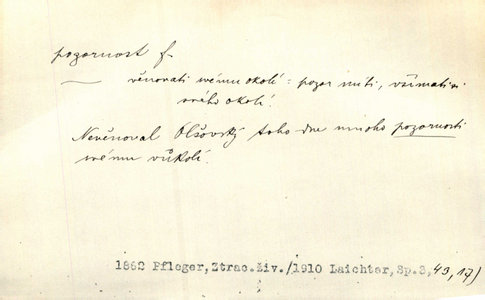 pozornost f.
— věnovati svému okolí : pozor míti, všímati si
svého okolí.
Nevěnoval Olšovský toho dne mnoho pozornosti
svému vůkolí.
1862 Pfleger, Ztrac.živ./1910 Laichter, Sp.3, 43, 17)